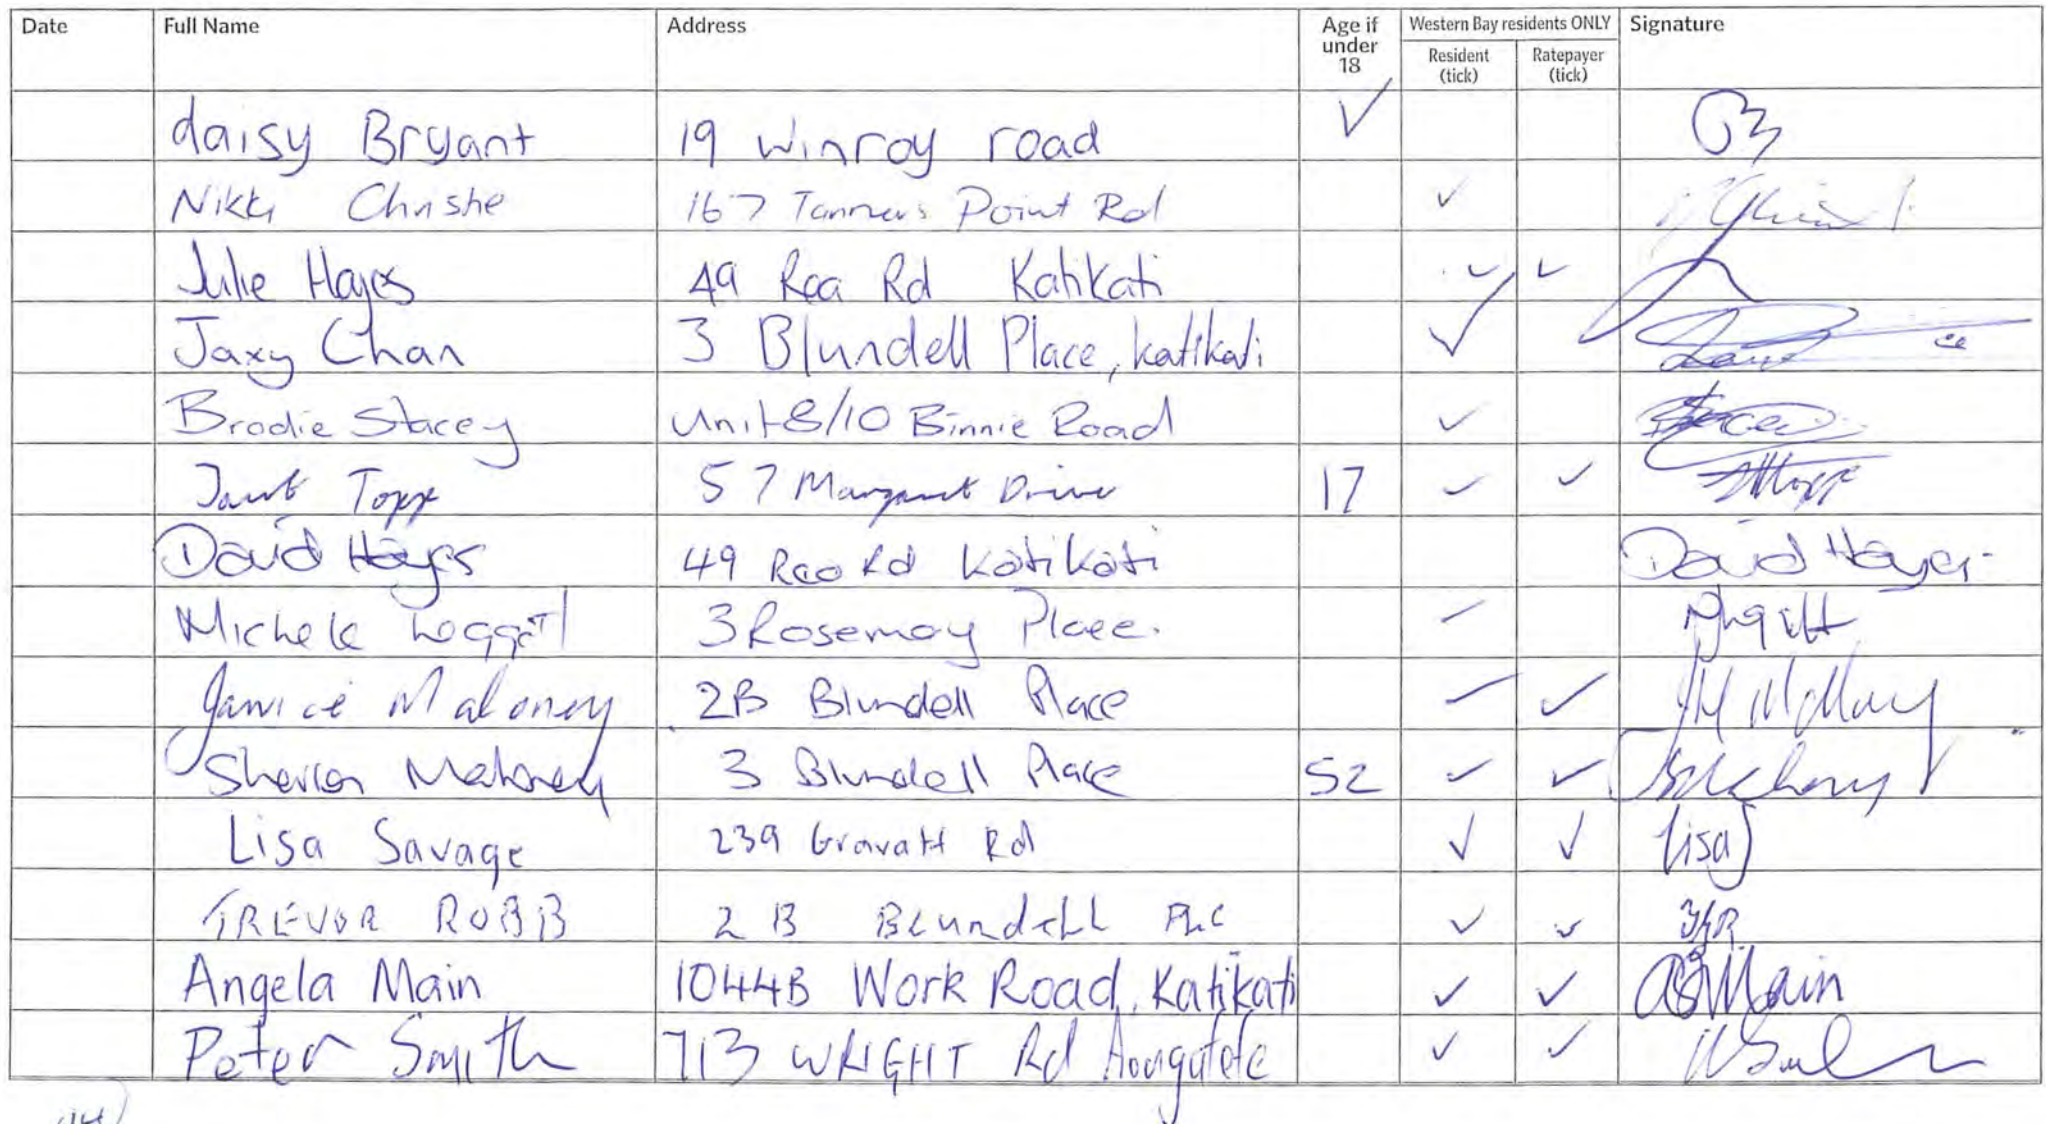 Date Full Name Address Age if under 18 Western Bay residents ONLY Resident (tick) Ratepayer (tick) Signature
daisy Bryant 19 Winroy road ✓
Nikki Christie 167 Tanners Point Rd ✓
Julie Hayes 49 Rea Rd Katikati ✓ ✓
Jaxy Chan 3 Blundell Place, Katikati ✓
Brodie Stacey Unit 8/10 Binnie Road ✓
Janet Topp 57 Margaret Drive 17 ✓ ✓
David Hayes 49 Rea Rd Katikati David Hayes
Michele 3 Rosemary Place. ✓
Janice Maloney 2B Blundell Place ✓ ✓
Maloney 3 Blundell Place 52 ✓ ✓
Lisa Savage 239 Gravatt Rd ✓ ✓ LisaS
TREVOR ROBB 2 B BLUndeLL ✓ ✓
Angela Main 1044B Work Road, Katikati ✓ ✓ Main
Peter Smith 713 WRIGHT Rd Aongatete ✓ ✓